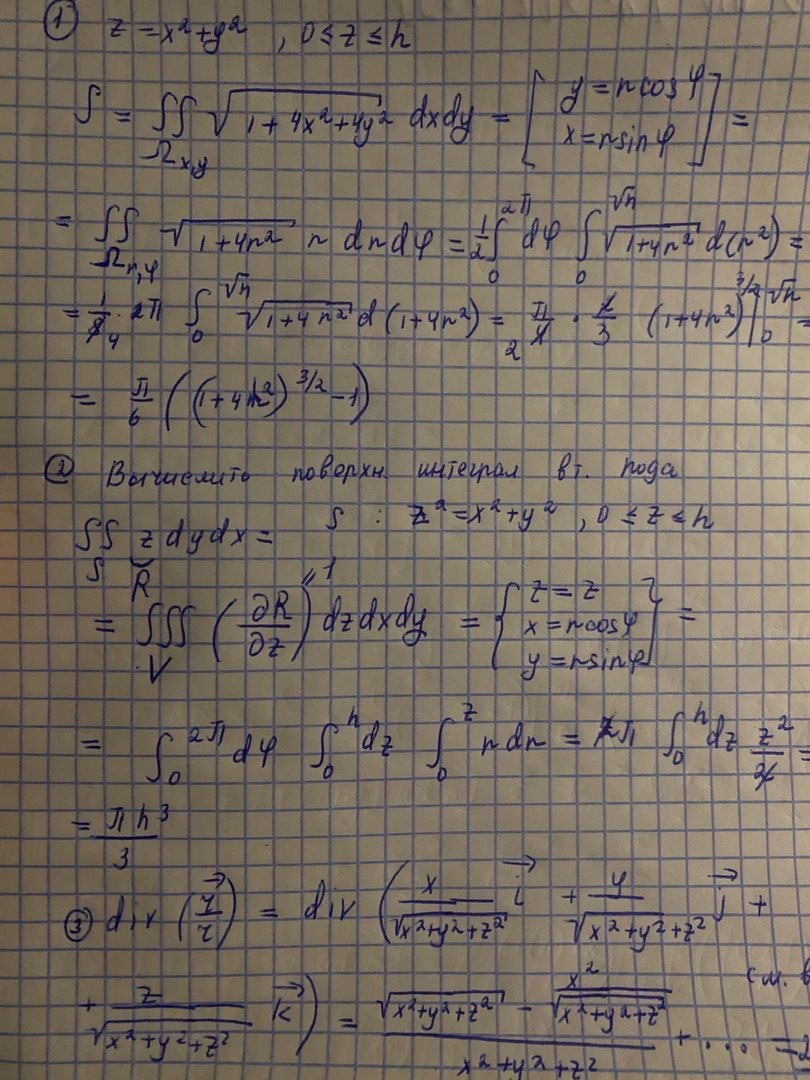 ① z = x² + y² , 0 ≤ z ≤ h
S = ∬_{Ωx,y} √(1 + 4x² + 4y²) dxdy = [ y = r cos φ
x = r sin φ ] =
= ∬_{Ωr,φ} √(1+4r²) r dr dφ = 1/2 ∫₀^{2π} dφ ∫₀^{√h} √(1+4r²) d(r²) =
∫₀^{√h} √(1+4r²) d(1+4r²) = (1+4r²)^{3/2} |₀^{√h} =
= π/6 ( − 1)
② Вычислить поверхн. интеграл вт. рода
∬_S z dydx = S : z² = x² + y² , 0 ≤ z ≤ h
R
= ∭_V (∂R/∂z) "1 dzdxdy = { z = z
x = r cos φ
y = r sin φ } =
= ∫₀^{2π} dφ ∫₀^h dz ∫₀^z r dr = 2π ∫₀^h dz z²/2 =
= πh³/3
③ div ( ) = div ( x/√(x²+y²+z²) i⃗ + y/√(x²+y²+z²) j⃗ +
см.
+ z/√(x²+y²+z²) k⃗ ) = (√(x²+y²+z²) − x²/√(x²+y²+z²))/(x²+y²+z²) + ... =